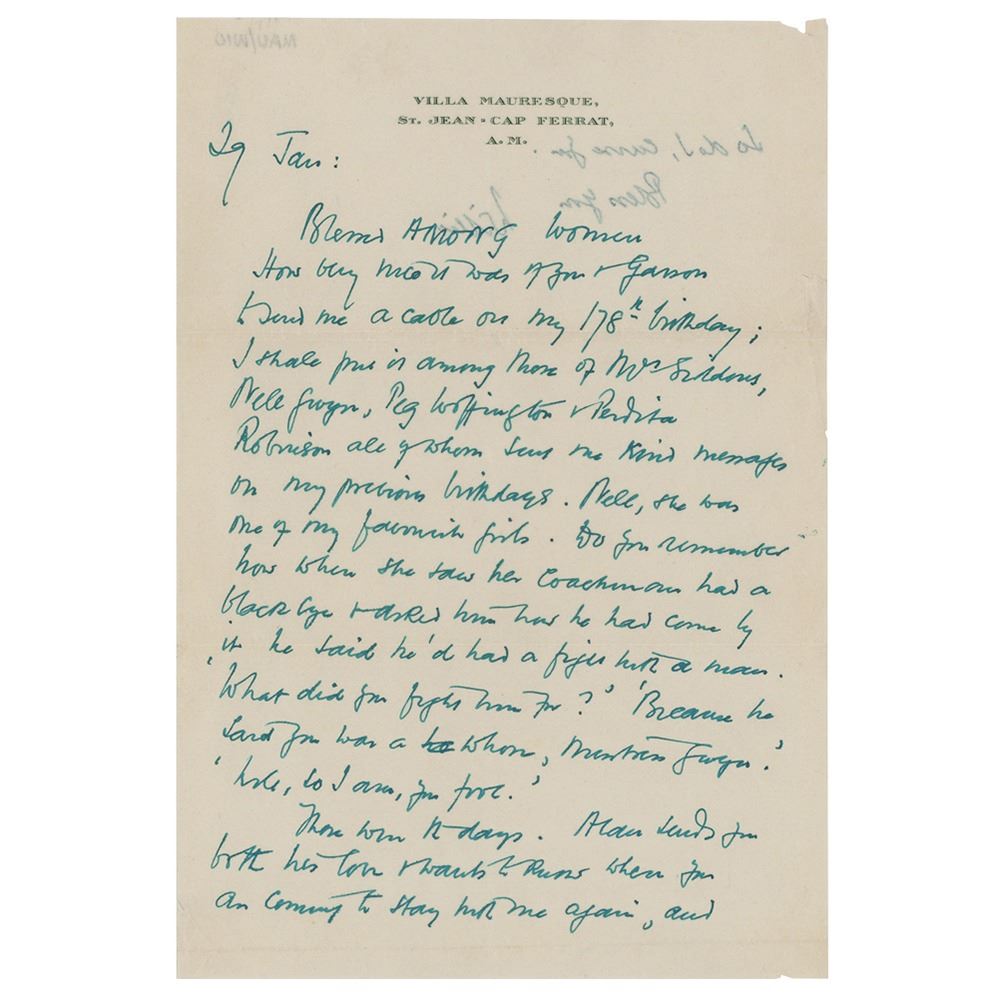 VILLA MAURESQUE,
ST. JEAN - CAP FERRAT,
A. M.
29 Jan:
Blessed AMONG Women
How very nice it was of you & Garson
to send me a cable on my 178th birthday;
I shall put it among those of Mrs Siddons,
Nell Gwyn, Peg Woffington & Perdita
Robinson all of whom sent me kind messages
on my previous birthdays. Nell, she was
one of my favourite girls. Do you remember
how when she saw her coachman had a
black eye & asked him how he had come by
it he said he'd had a fight with a man.
'What did you fight him for?' 'Because he
said you was a whore, Mistress Gwyn.'
'Well, so I am, you fool.'
Those were the days. Alan sends you
both his love & wants to know when you
are coming to stay with me again, and
so do I, curse you.
Bless you
Willie